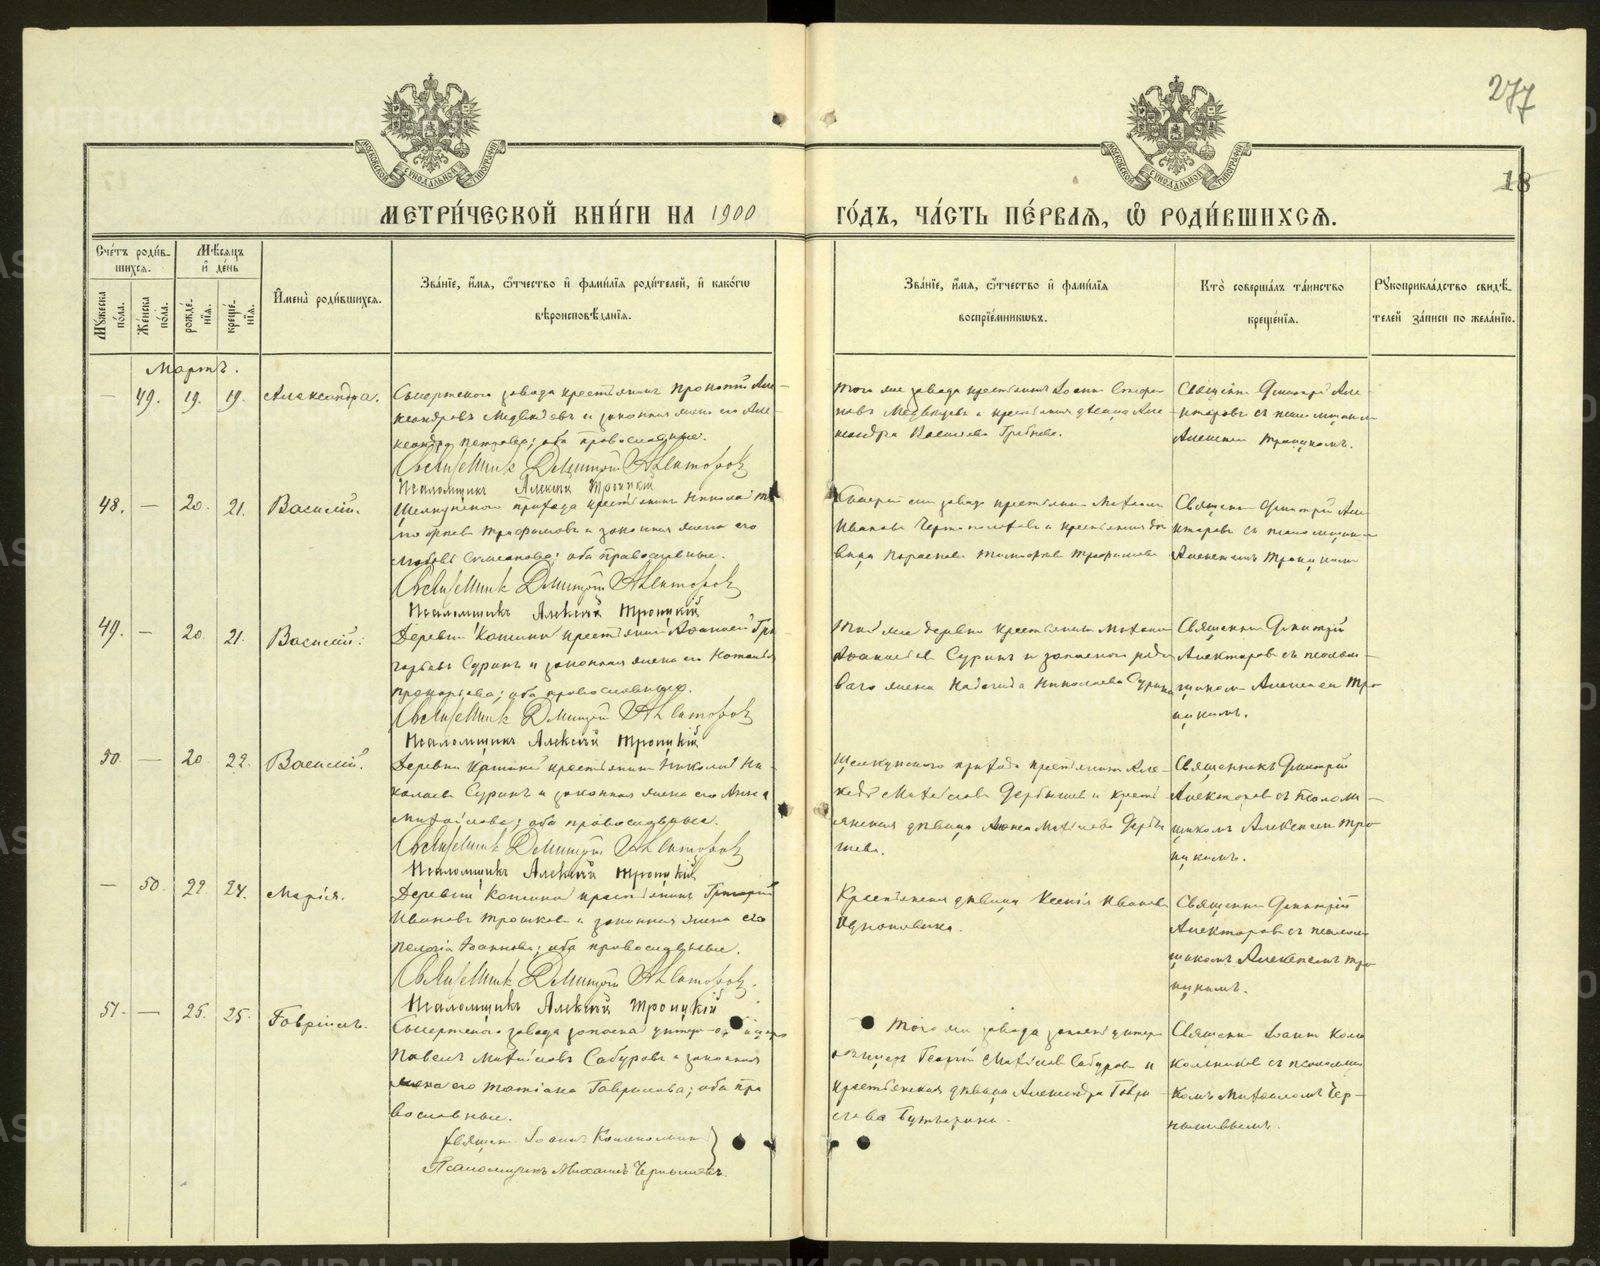 277
18
МЕТРИ́ЧЕСКОЙ КНИ́ГИ НА 1900
ГО́ДЪ, ЧА́СТЬ ПЕ́РВАЯ, Ѡ РОДИ́ВШИХСЯ.
Сче́тъ роди́в-
шихся.
Мѣ́сяцъ
и де́нь
Му́жеска
по́ла.
Же́нска
по́ла.
рожде́-
нія.
креще́-
нія.
Имена̀ роди́вшихся.
Зва́ніе, и́мя, ѻ́тчество и фами́лія роди́телей, и како́гѡ
вѣроисповѣ́данія.
Зва́ніе, и́мя, ѻ́тчество и фами́лія
воспріе́мникѡвъ.
Кто̀ соверша́лъ та́инство
креще́нія.
Рꙋкоприкла́дство свидѣ́-
телей за́писи по жела́нію.
Мартъ.
— 49. 19. 19. Александра.
Сысертскаго завода крестьянинъ Прокопій Але-
ксандровъ Медвѣдевъ и законная жена его Але-
ксандра Петрова; оба православные.
Священникъ Димитрій Алекторовъ
Псаломщикъ Алексѣй Троицкій
того же завода крестьянинъ Іоаннъ Стефа-
новъ Медвѣдевъ и крестьянская дѣвица Але-
ксандра Васильева
Священ. Димитрій Але-
кторовъ съ псаломщикомъ
Алексѣемъ Троицкимъ.
48. — 20. 21. Василій.
Щелкунскаго прихода крестьянинъ Николай
Трофимовъ и законная жена его
Любовь Симеонова; оба православные.
Священникъ Димитрій Алекторовъ
Псаломщикъ Алексѣй Троицкій
завода крестьянинъ Михаилъ
Ивановъ и крестьянская дѣ-
вица Параскева Трофимова
Священ. Димитрій Але-
кторовъ съ псаломщикомъ
Алексѣемъ Троицкимъ
49. — 20. 21. Василій.
Деревни Кашиной крестьянинъ Аѳанасій Гри-
горьевъ Суринъ и законная жена его Наталья
Прокопьева; оба православные.
Священникъ Димитрій Алекторовъ
Псаломщикъ Алексѣй Троицкій
той же деревни крестьянинъ Михаилъ
Аѳанасьевъ Суринъ и запаснаго рядо-
ваго жена Надежда Николаева Сурина
Священ. Димитрій
Алекторовъ съ псалом-
щикомъ Алексѣемъ Тро-
ицкимъ.
50. — 20 22. Василій.
Деревни Кашиной крестьянинъ Николай Ни-
колаевъ Суринъ и законная жена его Анна
Михайлова; оба православные.
Священникъ Димитрій Алекторовъ
Псаломщикъ Алексѣй Троицкій
Щелкунского прихода крестьянинъ Але-
ксѣй Михайловъ Дербышевъ и кресть-
янская дѣвица Анна Михайлова Дербы-
шева.
Священникъ Димитрій
Алекторовъ съ псалом-
щикомъ Алексѣемъ Тро-
ицкимъ.
— 50. 22. 24. Марія.
Деревни Кашиной крестьянинъ Григорій
Ивановъ Трошковъ и законная жена его
Пелагія Іоаннова; оба православные.
Священникъ Димитрій Алекторовъ.
Псаломщикъ Алексѣй Троицкій
Крестьянская дѣвица Ксенія Иванова
Священ. Димитрій
Алекторовъ съ псалом-
щикомъ Алексѣемъ Тро-
ицкимъ.
51. — 25. 25. Гавріилъ.
Сысертскаго завода запасный унтеръ-офицеръ
Павелъ Михайловъ Сабуровъ и законная
жена его Татіана Гаврилова; оба пра-
вославные.
Священ. Іоаннъ
Псаломщикъ Михаилъ Чернышевъ.
того же завода запасный унтеръ-
офицеръ Георгій Михайловъ Сабуровъ и
крестьянская дѣвица Александра Гаври-
лова
Священ. Іоаннъ
съ псаломщи-
комъ Михаиломъ Чер-
нышевымъ.
METRIKI.GASO-URAL.RU